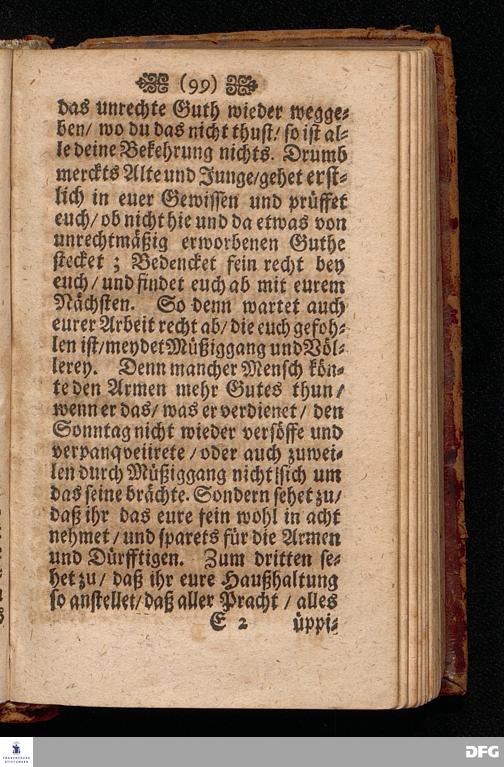 (99)
das unrechte Guth wieder wegge⸗
ben/ wo du das nicht thust/ so ist al⸗
le deine Bekehrung nichts. Drumb
merckts Alte und Junge/gehet erst⸗
lich in euer Gewissen und prüffet
euch/ ob nicht hie und da etwas von
unrechtmäßig erworbenen Guthe
stecket ; Bedencket fein recht bey
euch/ und findet euch ab mit eurem
Nächsten. So denn wartet auch
eurer Arbeit recht ab/ die euch gefoh⸗
len ist/meydet Müßiggang und Völ⸗
lerey. Denn mancher Mensch kön⸗
te den Armen mehr Gutes thun/
wenn er das/ was er verdienet/ den
Sonntag nicht wieder versöffe und
verpanqveiirete/ oder auch zuwei⸗
len durch Müßiggang nicht sich um
das seine brächte. Sondern sehet zu/
daß ihr das eure fein wohl in acht
nehmet/ und sparets für die Armen
und Dürfftigen. Zum dritten se⸗
het zu/ daß ihr eure Haußhaltung
so anstellet/daß aller Pracht / alles
E 2 üppi⸗
FRANCKESCHE
STIFTUNGEN
DFG